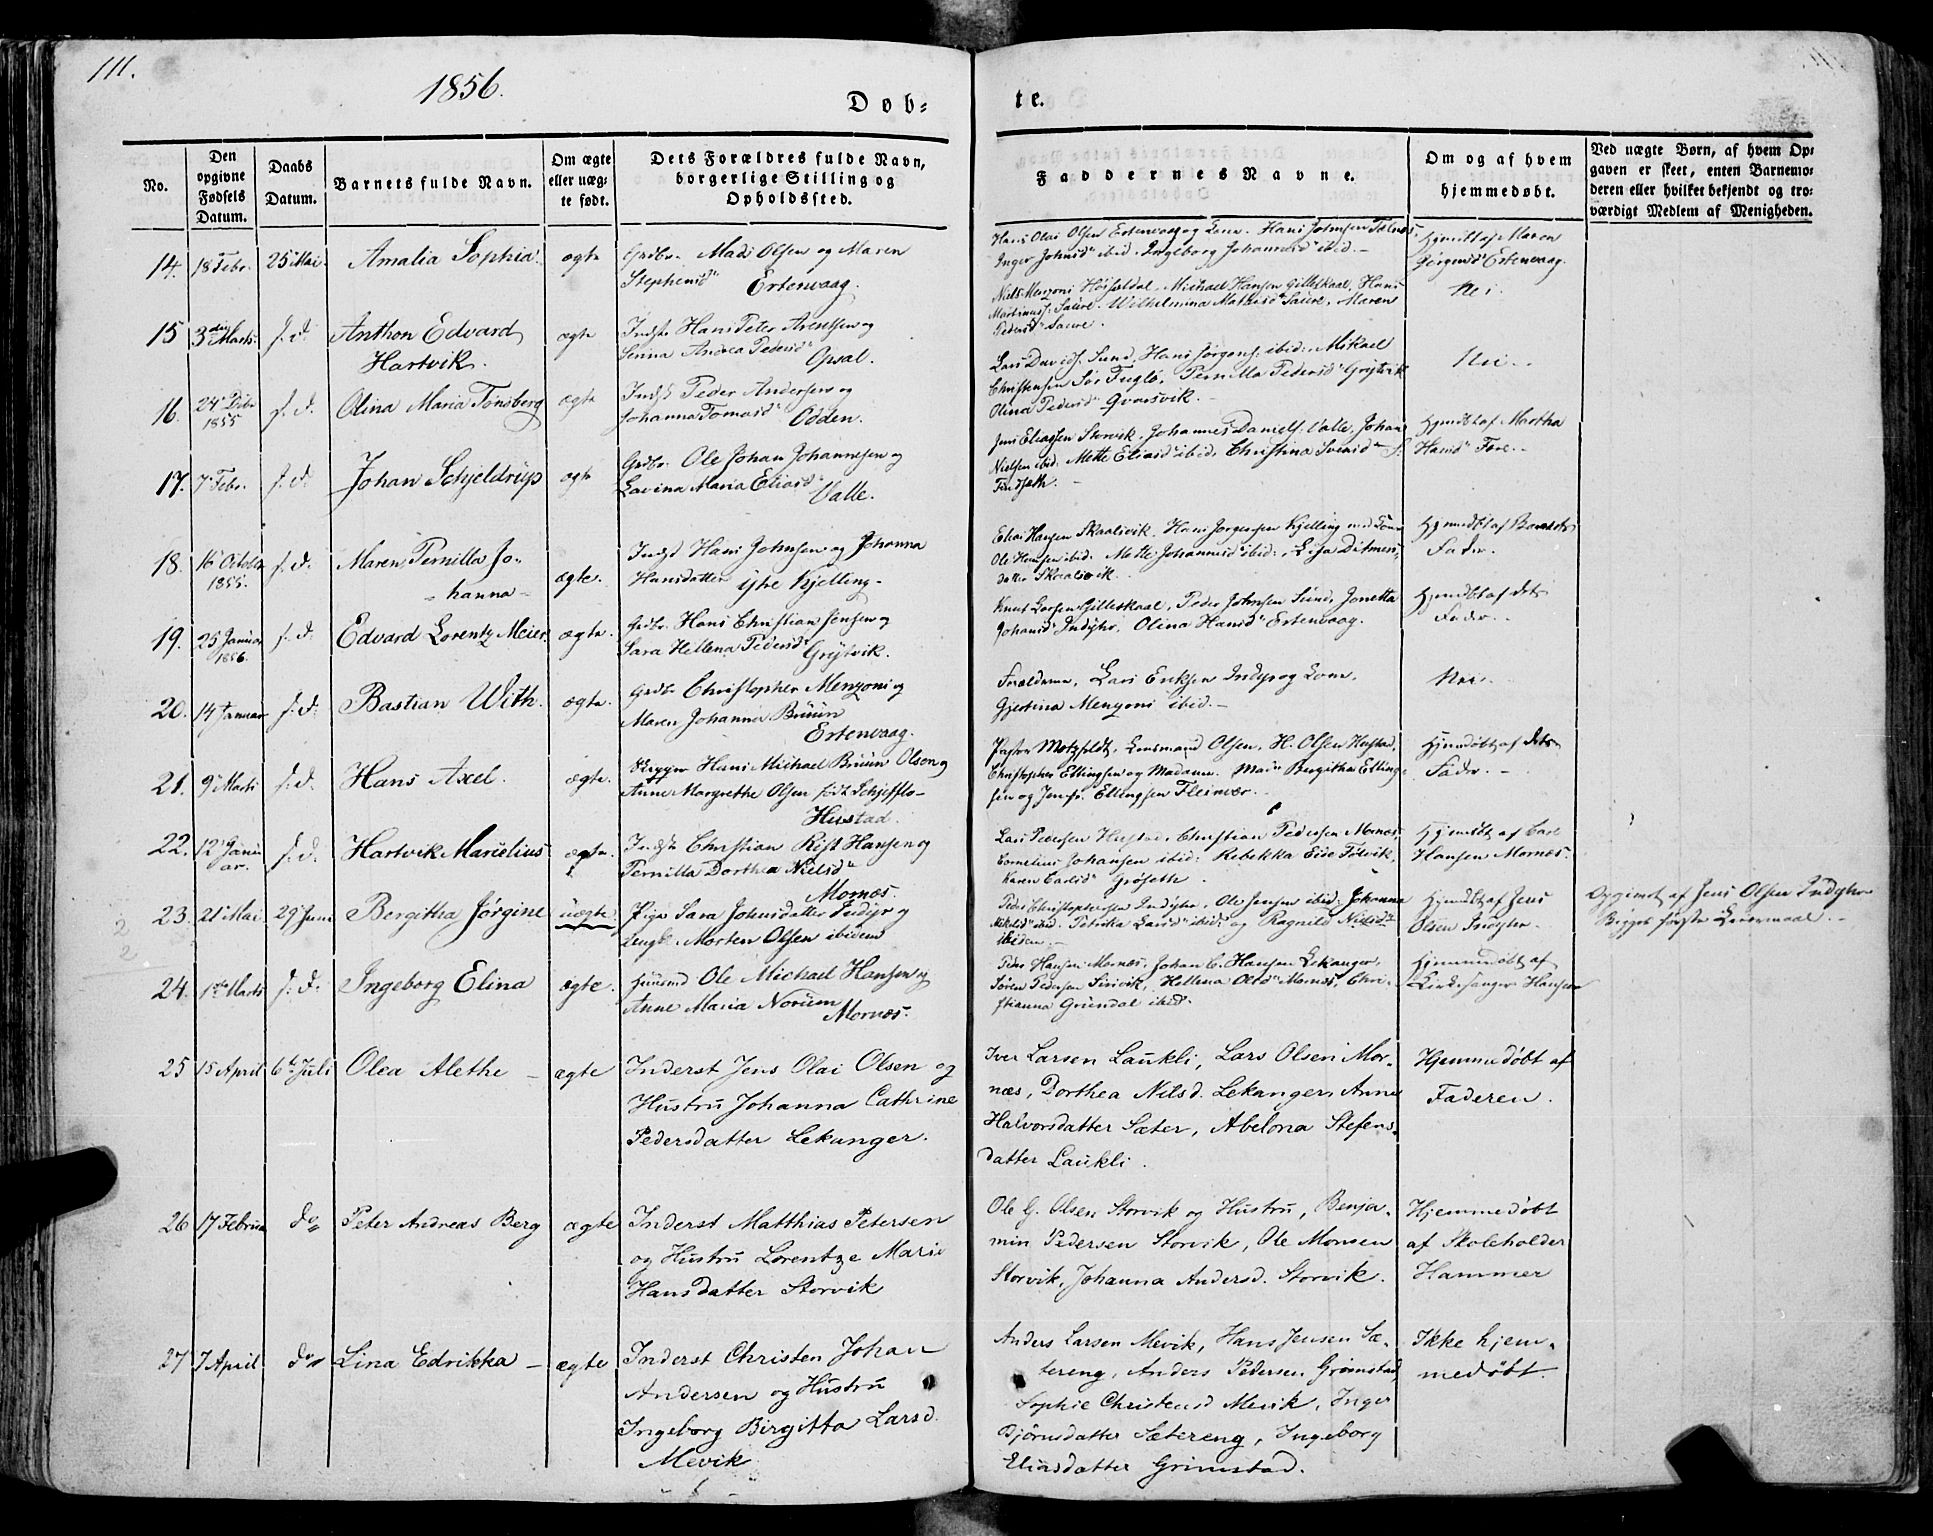 111.
1856.
Døb-
te.
No.
Den
opgivne
Fødsels
Datum.
Daabs
Datum.
Barnets fulde Navn.
Om ægte
eller uæg-
te født.
Dets Forældres fulde Navn,
borgerlige Stilling og
Opholdssted.
Faddernes Navne.
Om og af hvem
hjemmedøbt.
Ved uægte Børn, af hvem Op-
gaven er skeet, enten Barnemo-
deren eller hvilket bekjendt og tro-
værdigt Medlem af Menigheden.
14. 18 Febr. 25 Mai. Amalia Sophia. ægte
Grdbr. Mads Olsen og Maren
Stephensd Ertenvaag.
Hans Olai Olsen Ertenvaag og Kone. Hans Johnsen
Inger Johnsd ibid. Ingeborg Johannesd ibid.
Hjemdbt af Maren
Jørgensd Ertenvaag.
15 3die Marts. s. d. Anthon Edvard
Hartvik. ægte
Indst Hans Peter Arentsen og
Andrea Pedersd Opsal.
Niels Menzoni Michael Hansen Gilleskaal, Hans
Saure. Wilhelmina Saure, Maren
Pedersd Saure.
Nei.
16. 24 Dbr
1855 s. d. Olina Maria Tønsberg ægte
Indst Peder Andersen og
Johanna Tomasd Odden.
Lars Davids. Sund, Hans Jørgens. ibid. Mikael
Christensen Sør Fuglø, Pernilla Pedersd
Olina Pedersd
Nei.
17. 7 Febr. s. d. Johan Schjeldrup ægte
Grdbr. Ole Johan Johannesen og
Lavina Maria Eliasd Valle.
Jens Eliassen Storvik. Johannes Daniels. Valle, Johan
Nielsen ibid. Mette Eliasd ibid. Christina

Hjemdbt af Martha
Hansd Fore.
18. 16 October
1855. s. d. Maren Pernilla Jo-
hanna ægte.
Indst Hans Johnsen og Johanna
Hansdatter ytre Kjelling
Elias Hansen Skaalsvik. Hans Jørgensen Kjelling med Kone
Ole Hansen ibid. Mette Johannesd ibid. Lisa Ditmers-
datter Skaalsvik.
Hjemdbt af Barnets
Fader.
19. 25 Januar
1856. s. d. Edvard Lorentz Meier ægte.
Grdbr. Hans Christian Jensen og
Sara Hellena Pedersd
Knut Larsen Gilleskaal, Peder Johnsen Sund, Jonetta
Johansd Indyhr, Olina Hansd Ertenvaag.
Hjemdbt af dets
Fader.
20. 14 Januar s. d. Bastian With. ægte.
Grdbr Christopher Menzoni og
Maren Johanna Bruun
Ertenvaag.
Forældrene, Lars Eriksen Indyr og Kone.
Gjertina Menzoni ibid.
Nei.
21. 9 Marts s. d. Hans Axel. ægte.
Hans Michael Bruun Olsen og
Anne Margrethe Olsen født
Hustad.
Pastor Motzfeldt, Lensmand Olsen, H. Olsen Hustad,
Christopher Ellingsen og Madame. Birgitha Elling-
sen og Jomfr. Ellingsen Fleinvær.
Hjemdøbt af dets
Fader.
22. 12 Janu
ar. s. d. Hartvik Marselius ægte.
Indst Christian Rist Hansen og
Pernilla Dorthea Nielsd
Mornæs.
Lars Pedersen Hustad, Christian Pedersen Mornæs,
Cornelius Johansen ibid. Rebekka
Karen Carlsd Grøseth.
Hjemdøt af Carl
Hansen Mornæs.
23. 21 Mai 29 Juni Bergitha Jørgine uægte
Pige Sara Johnsdatter Indyr og
Ungk. Morten Olsen ibidem
Peder Christophersen Indyhr, Ole Jensen ibid. Johanna
Petrika Larsd ibid. og Ragnild Nielsd
ibidem.
Hjemdbt af Jens
Olsen Indyhr.
Opgivet af Jens Olsen Indyhr
første Leiermaal.
24. 1ste Marts s. d. Ingeborg Elina ægte.
Huusmd Ole Michael Hansen og
Anne Maria Norum
Mornæs.
Peder Hansen Mornæs, Johan C. Hansen Lekanger,
Søren Pedersen Hellena Olsd Mornæs, Chri-
stianna Grundal ibid.
Hjemmedøbt af
Kirkesanger Hansen
25 15 April 6te Juli Olea Alethe ægte
Inderst Jens Olai Olsen og
Hustru Johanna Cathrine
Pedersdatter Lekanger.
Iver Larsen Laukli, Lars Olsen Mor-
næs, Dorthea Nilsd. Lekanger, Anne
Halvorsdatter Sæter, Abelona Stefens-
datter Laukli.
Hjemmedøbt af
Faderen.
26 17 Februa do Peter Andreas Berg ægte
Inderst Matthias Petersen
og Hustru Lorentze Marie
Hansdatter Storvik
Ole G. Olsen Storvik og Hustru, Benja-
min Pedersen Storvik, Ole Monsen
Storvik, Johanna Andersd. Storvik.
Hjemmedøbt
af Skoleholder
Hammer
27 7 April do Lina Edrikka ægte
Inderst Christen Johan
Andersen og Hustru
Ingeborg Birgitta Larsd.
Mevik
Anders Larsen Mevik, Hans Jensen Sæ-
tereng, Anders Pedersen Grimstad,
Sophie Christensd Mevik, Inger
Bjørnsdatter Sætereng, Ingeborg
Eliasdatter Grimstad.
Ikke hjem-
medøbt.